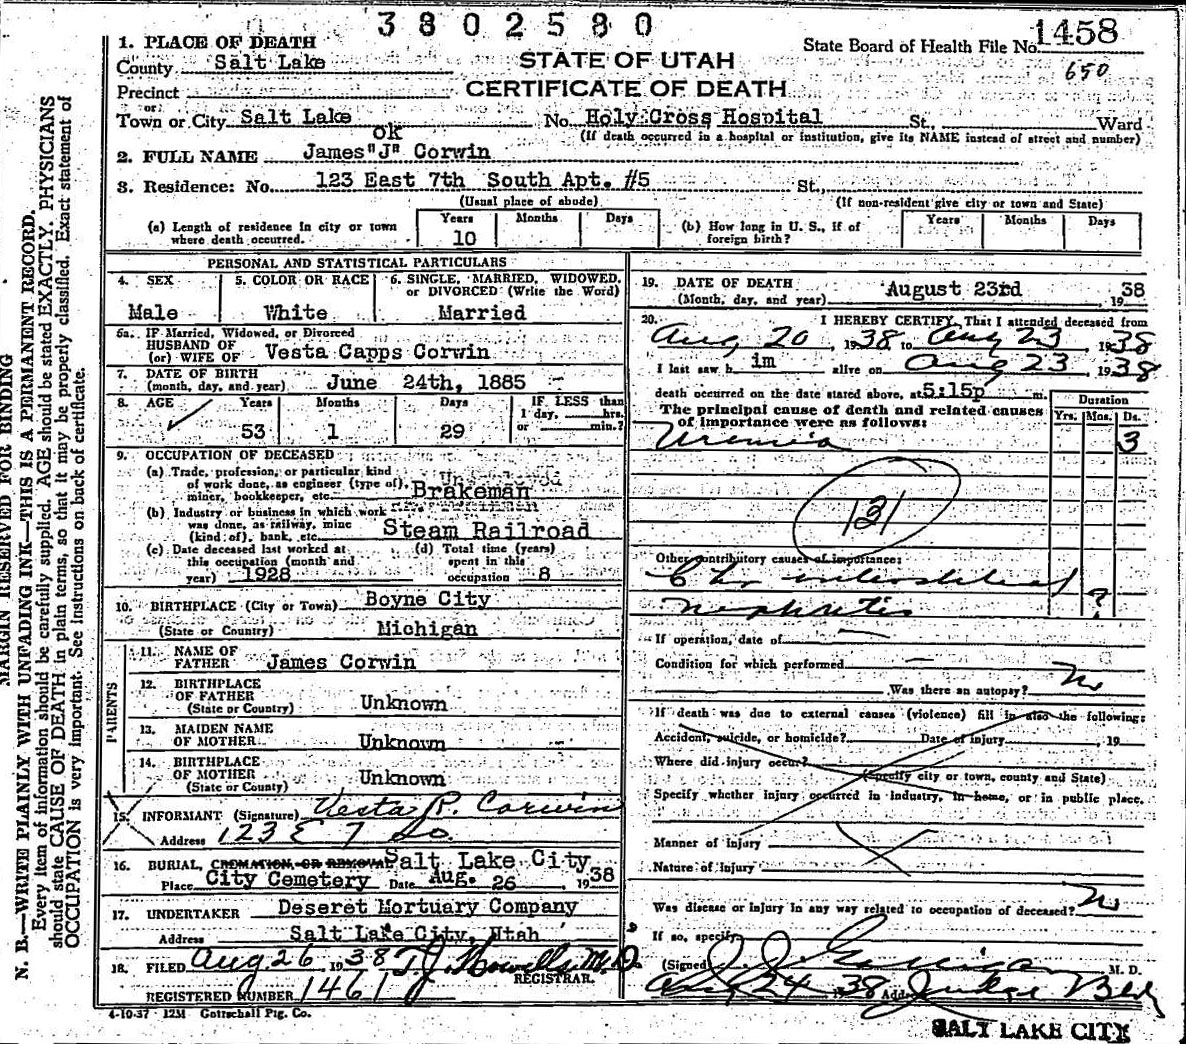 3802580
1458
State Board of Health File No.
650
1. PLACE OF DEATH
STATE OF UTAH
County Salt Lake
CERTIFICATE OF DEATH
Precinct
or
Town or City Salt Lake No. Holy Cross Hospital St., Ward
ok
(If death occurred in a hospital or institution, give its NAME instead of street and number)
2. FULL NAME James "J" Corwin
3. Residence: No. 123 East 7th South Apt. #5 St.,
(Usual place of abode) (If non-resident give city or town and State)
(a) Length of residence in city or town where death occurred. Years 10 Months Days
(b) How long in U. S., if of foreign birth? Years Months Days
PERSONAL AND STATISTICAL PARTICULARS
4. SEX Male
5. COLOR OR RACE White
6. SINGLE, MARRIED, WIDOWED, or DIVORCED (Write the Word) Married
6a. IF Married, Widowed, or Divorced
HUSBAND OF
(or) WIFE OF Vesta Capps Corwin
7. DATE OF BIRTH
(month, day, and year) June 24th, 1885
8. AGE Years 53 Months 1 Days 29 IF LESS than 1 day, hrs. or min.?
9. OCCUPATION OF DECEASED
(a) Trade, profession, or particular kind
of work done, as engineer (type of),
miner, bookkeeper, etc. Brakeman
(b) Industry or business in which work
was done, as railway, mine
(kind of), bank, etc. Steam Railroad
(c) Date deceased last worked at
this occupation (month and
year) 1928
(d) Total time (years)
spent in this
occupation 8
10. BIRTHPLACE (City or Town) Boyne City
(State or Country) Michigan
PARENTS
11. NAME OF
FATHER James Corwin
12. BIRTHPLACE
OF FATHER
(State or Country) Unknown
13. MAIDEN NAME
OF MOTHER Unknown
14. BIRTHPLACE
OF MOTHER
(State or Country) Unknown
15. INFORMANT (Signature) Vesta R. Corwin
Address 123 E 7 So
16. BURIAL, CREMATION OR REMOVAL Salt Lake City
Place City Cemetery Date Aug. 26, 1938
17. UNDERTAKER Deseret Mortuary Company
Address Salt Lake City, Utah
18. FILED Aug 26 1938 T.J. Howells M.D.
REGISTRAR.
REGISTERED NUMBER 1461
4-10-37 12M Gottschall Ptg. Co.
19. DATE OF DEATH
(Month, day, and year) August 23rd, 1938
20. I HEREBY CERTIFY, That I attended deceased from
Aug 20, 1938, to Aug 23 1938
I last saw h im alive on Aug 23, 1938
death occurred on the date stated above, at 5:15p m.
The principal cause of death and related causes
of importance were as follows:
Duration
Yrs. Mos. Ds.
Uremia 3
131
Other contributory causes of importance:
Chr interstitial
nephritis ?
If operation, date of —
Condition for which performed —
Was there an autopsy? No
If death was due to external causes (violence) fill in also the following:
Accident, suicide, or homicide? Date of injury , 19
Where did injury occur?
(Specify city or town, county and State)
Specify whether injury occurred in industry, in home, or in public place.
Manner of injury
Nature of injury
Was disease or injury in any way related to occupation of deceased? No
If so, specify
(Signed) M. D.
Aug 24 1938 Address Judge Bldg
SALT LAKE CITY
MARGIN RESERVED FOR BINDING
N. B.—WRITE PLAINLY WITH UNFADING INK—THIS IS A PERMANENT RECORD.
Every item of information should be carefully supplied. AGE should be stated EXACTLY. PHYSICIANS
should state CAUSE OF DEATH in plain terms, so that it may be properly classified. Exact statement of
OCCUPATION is very important. See instructions on back of certificate.